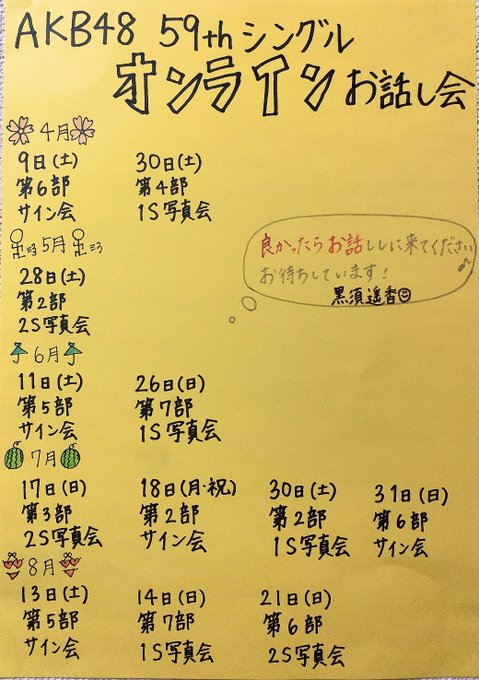 AKB48 59thシングル
オンラインお話し会
4月
9日(土) 30日(土)
第6部 第4部
サイン会 1S写真会
5月
良かったらお話ししに来てください♪
お待ちしています!
黒須遥香
28日(土)
第2部
2S写真会
6月
11日(土) 26日(日)
第5部 第7部
サイン会 1S写真会
7月
17日(日) 18日(月・祝) 30日(土) 31日(日)
第3部 第2部 第2部 第6部
2S写真会 サイン会 1S写真会 サイン会
8月
13日(土) 14日(日) 21日(日)
第5部 第7部 第6部
サイン会 1S写真会 2S写真会